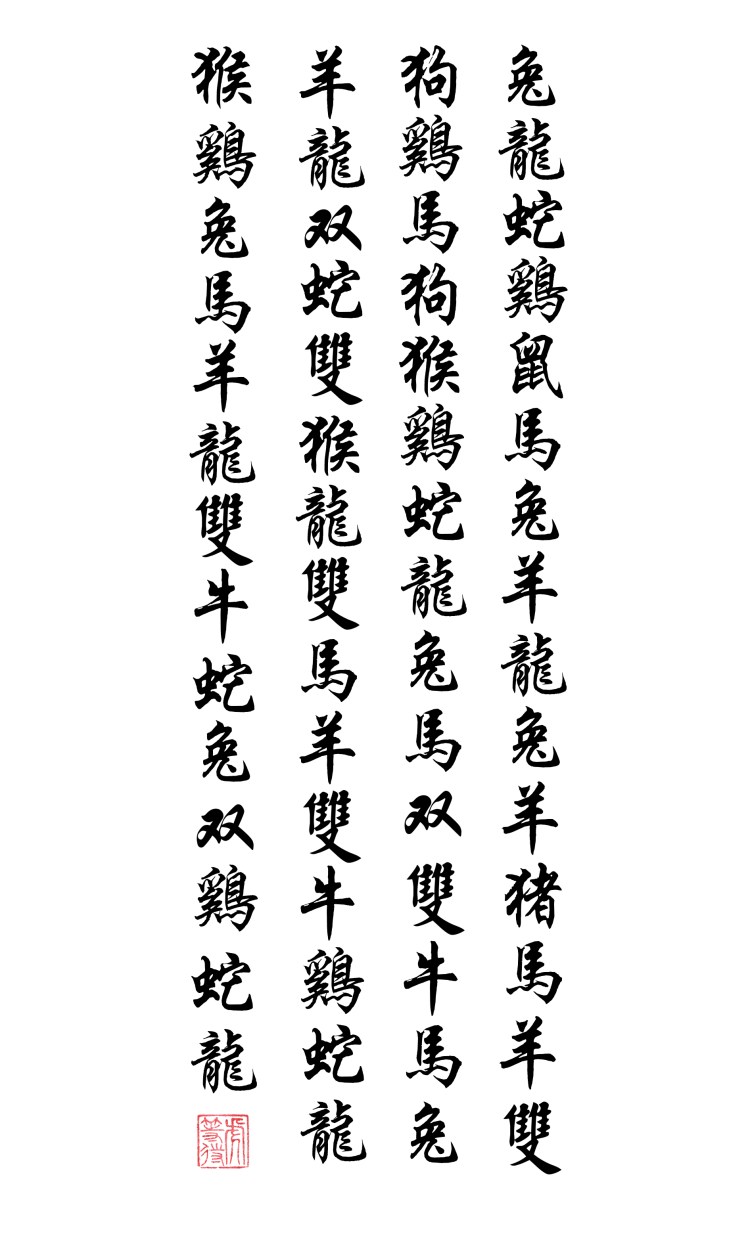 兔龍蛇鷄鼠馬兔羊龍兔羊猪馬羊雙
狗鷄馬狗猴鷄蛇龍兔馬双雙牛馬兔
羊龍双蛇雙猴龍雙馬羊雙牛鷄蛇龍
猴鷄兔馬羊龍雙牛蛇兔双鷄蛇龍